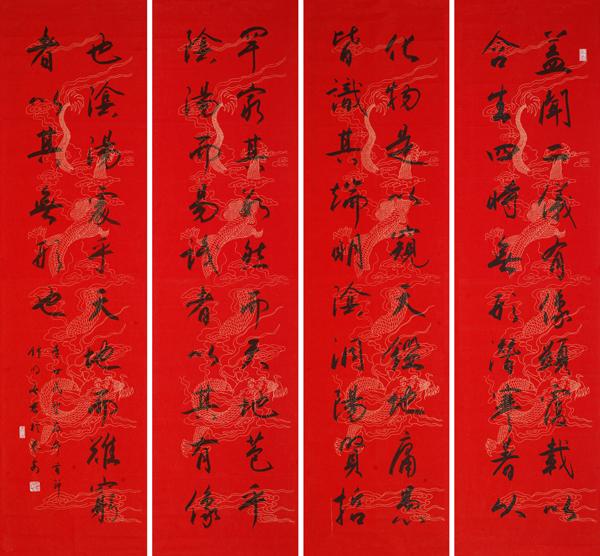 盖聞二儀有像顯覆載以
含生四時無形潛寒暑以
化物是以窺天鑑地庸愚
皆識其端明陰洞陽賢哲
罕窮其數然而天地苞乎
陰陽而易識者以其有像
也陰陽處乎天地而難窮
者以其無形也